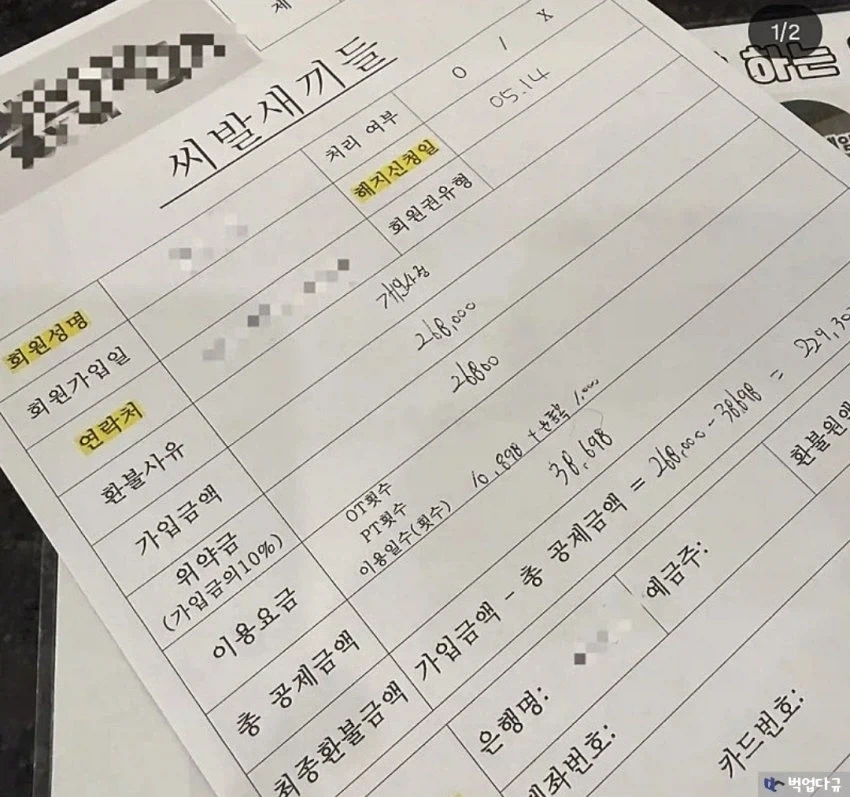 1/2
제
하는
씨발새끼들
처리 여부 O / X
해지신청일 05.14
회원권유형
회원성명
회원가입일
연락처
환불사유 개인사정
가입금액 268,000
위약금 26800
(가입금의10%)
이용요금 OT횟수
PT횟수
이용일수(횟수) 10,898 + 1,000
총 공제금액 38,698
최종환불금액 가입금액 - 총 공제금액 = 268,000 - 38,698 = 229,30
환불원액
은행명: 예금주:
계좌번호: 카드번호:
벅업다큐